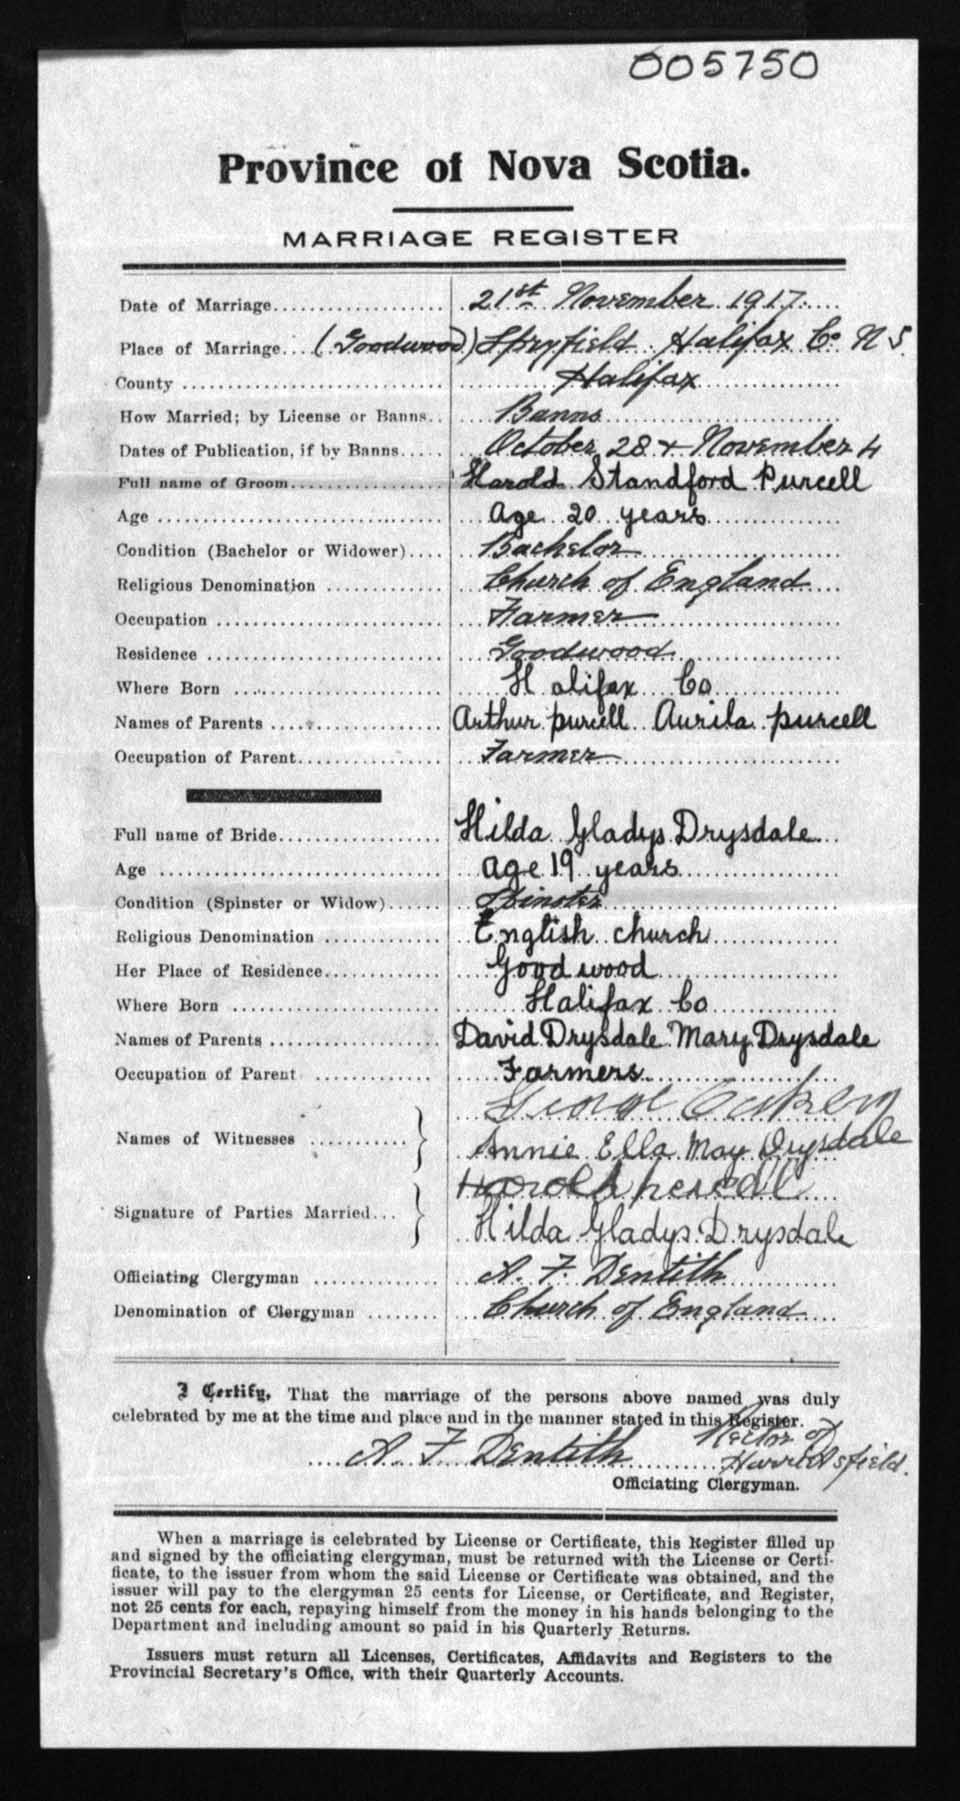 005750
Province of Nova Scotia.
MARRIAGE REGISTER
Date of Marriage 21st November 1917.
Place of Marriage (Goodwood) Spryfield. Halifax Co N S.
County Halifax
How Married; by License or Banns Banns
Dates of Publication, if by Banns October 28 + November 4
Full name of Groom Harold Standford Purcell
Age Age 20 years
Condition (Bachelor or Widower) Bachelor
Religious Denomination Church of England
Occupation Farmer
Residence Goodwood
Where Born Halifax Co
Names of Parents Arthur purcell Aurila purcell
Occupation of Parent Farmer
Full name of Bride Hilda Gladys Drysdale
Age age 19 years
Condition (Spinster or Widow) Spinster
Religious Denomination English church
Her Place of Residence Good wood
Where Born Halifax Co
Names of Parents David Drysdale Mary Drysdale
Occupation of Parent Farmers
George
Names of Witnesses } Annie Ella May Drysdale
Harold
Signature of Parties Married } Hilda Gladys Drysdale
Officiating Clergyman A. F. Dentith
Denomination of Clergyman Church of England
I Certify, That the marriage of the persons above named was duly
celebrated by me at the time and place and in the manner stated in this Register.
A. F. Dentith Rector of
Harrietsfield.
Officiating Clergyman.
When a marriage is celebrated by License or Certificate, this Register filled up
and signed by the officiating clergyman, must be returned with the License or Certi-
ficate, to the issuer from whom the said License or Certificate was obtained, and the
issuer will pay to the clergyman 25 cents for License, or Certificate, and Register,
not 25 cents for each, repaying himself from the money in his hands belonging to the
Department and including amount so paid in his Quarterly Returns.
Issuers must return all Licenses, Certificates, Affidavits and Registers to the
Provincial Secretary's Office, with their Quarterly Accounts.